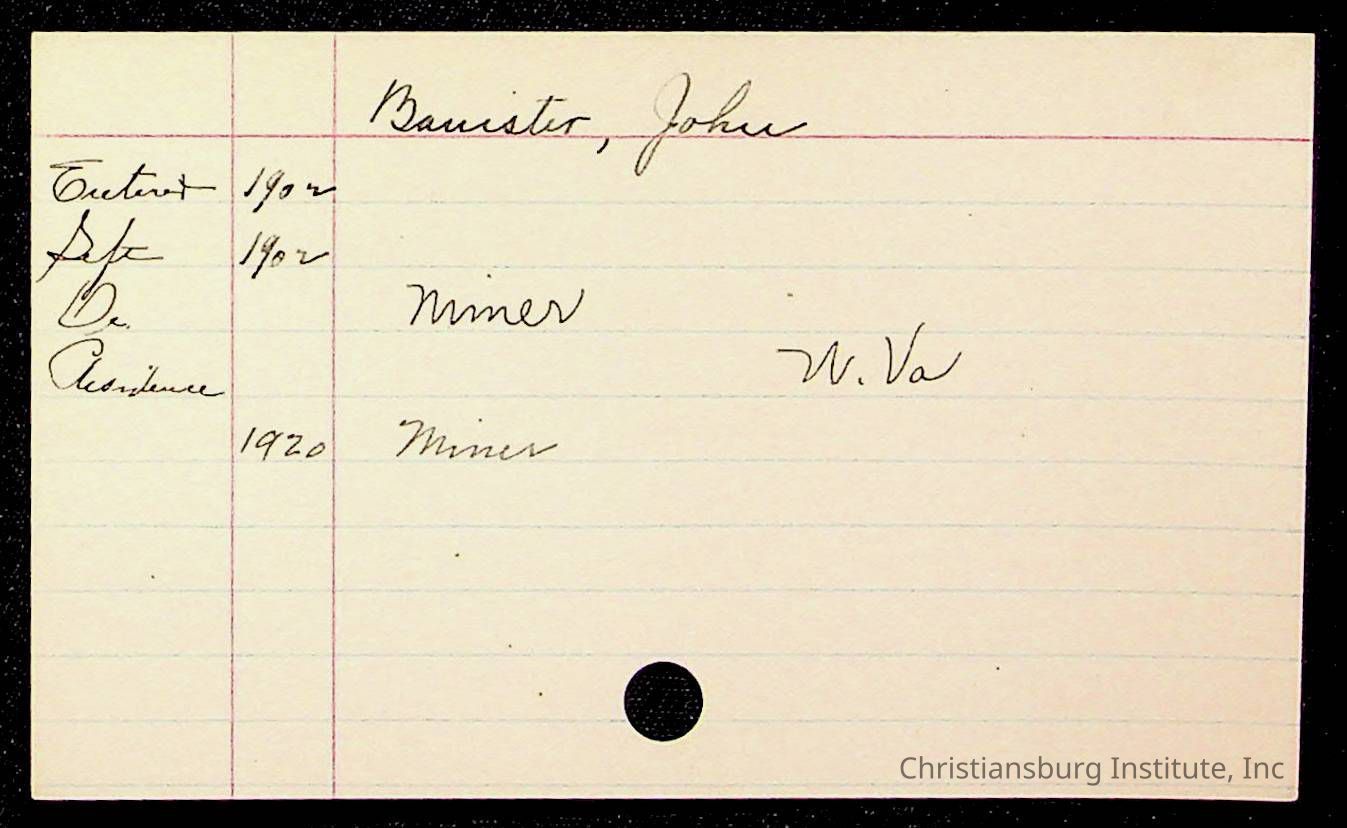 Banister, John
Entered 1902
Left 1902
Oc. Miner
Residence W. Va
1920 Miner
Christiansburg Institute, Inc